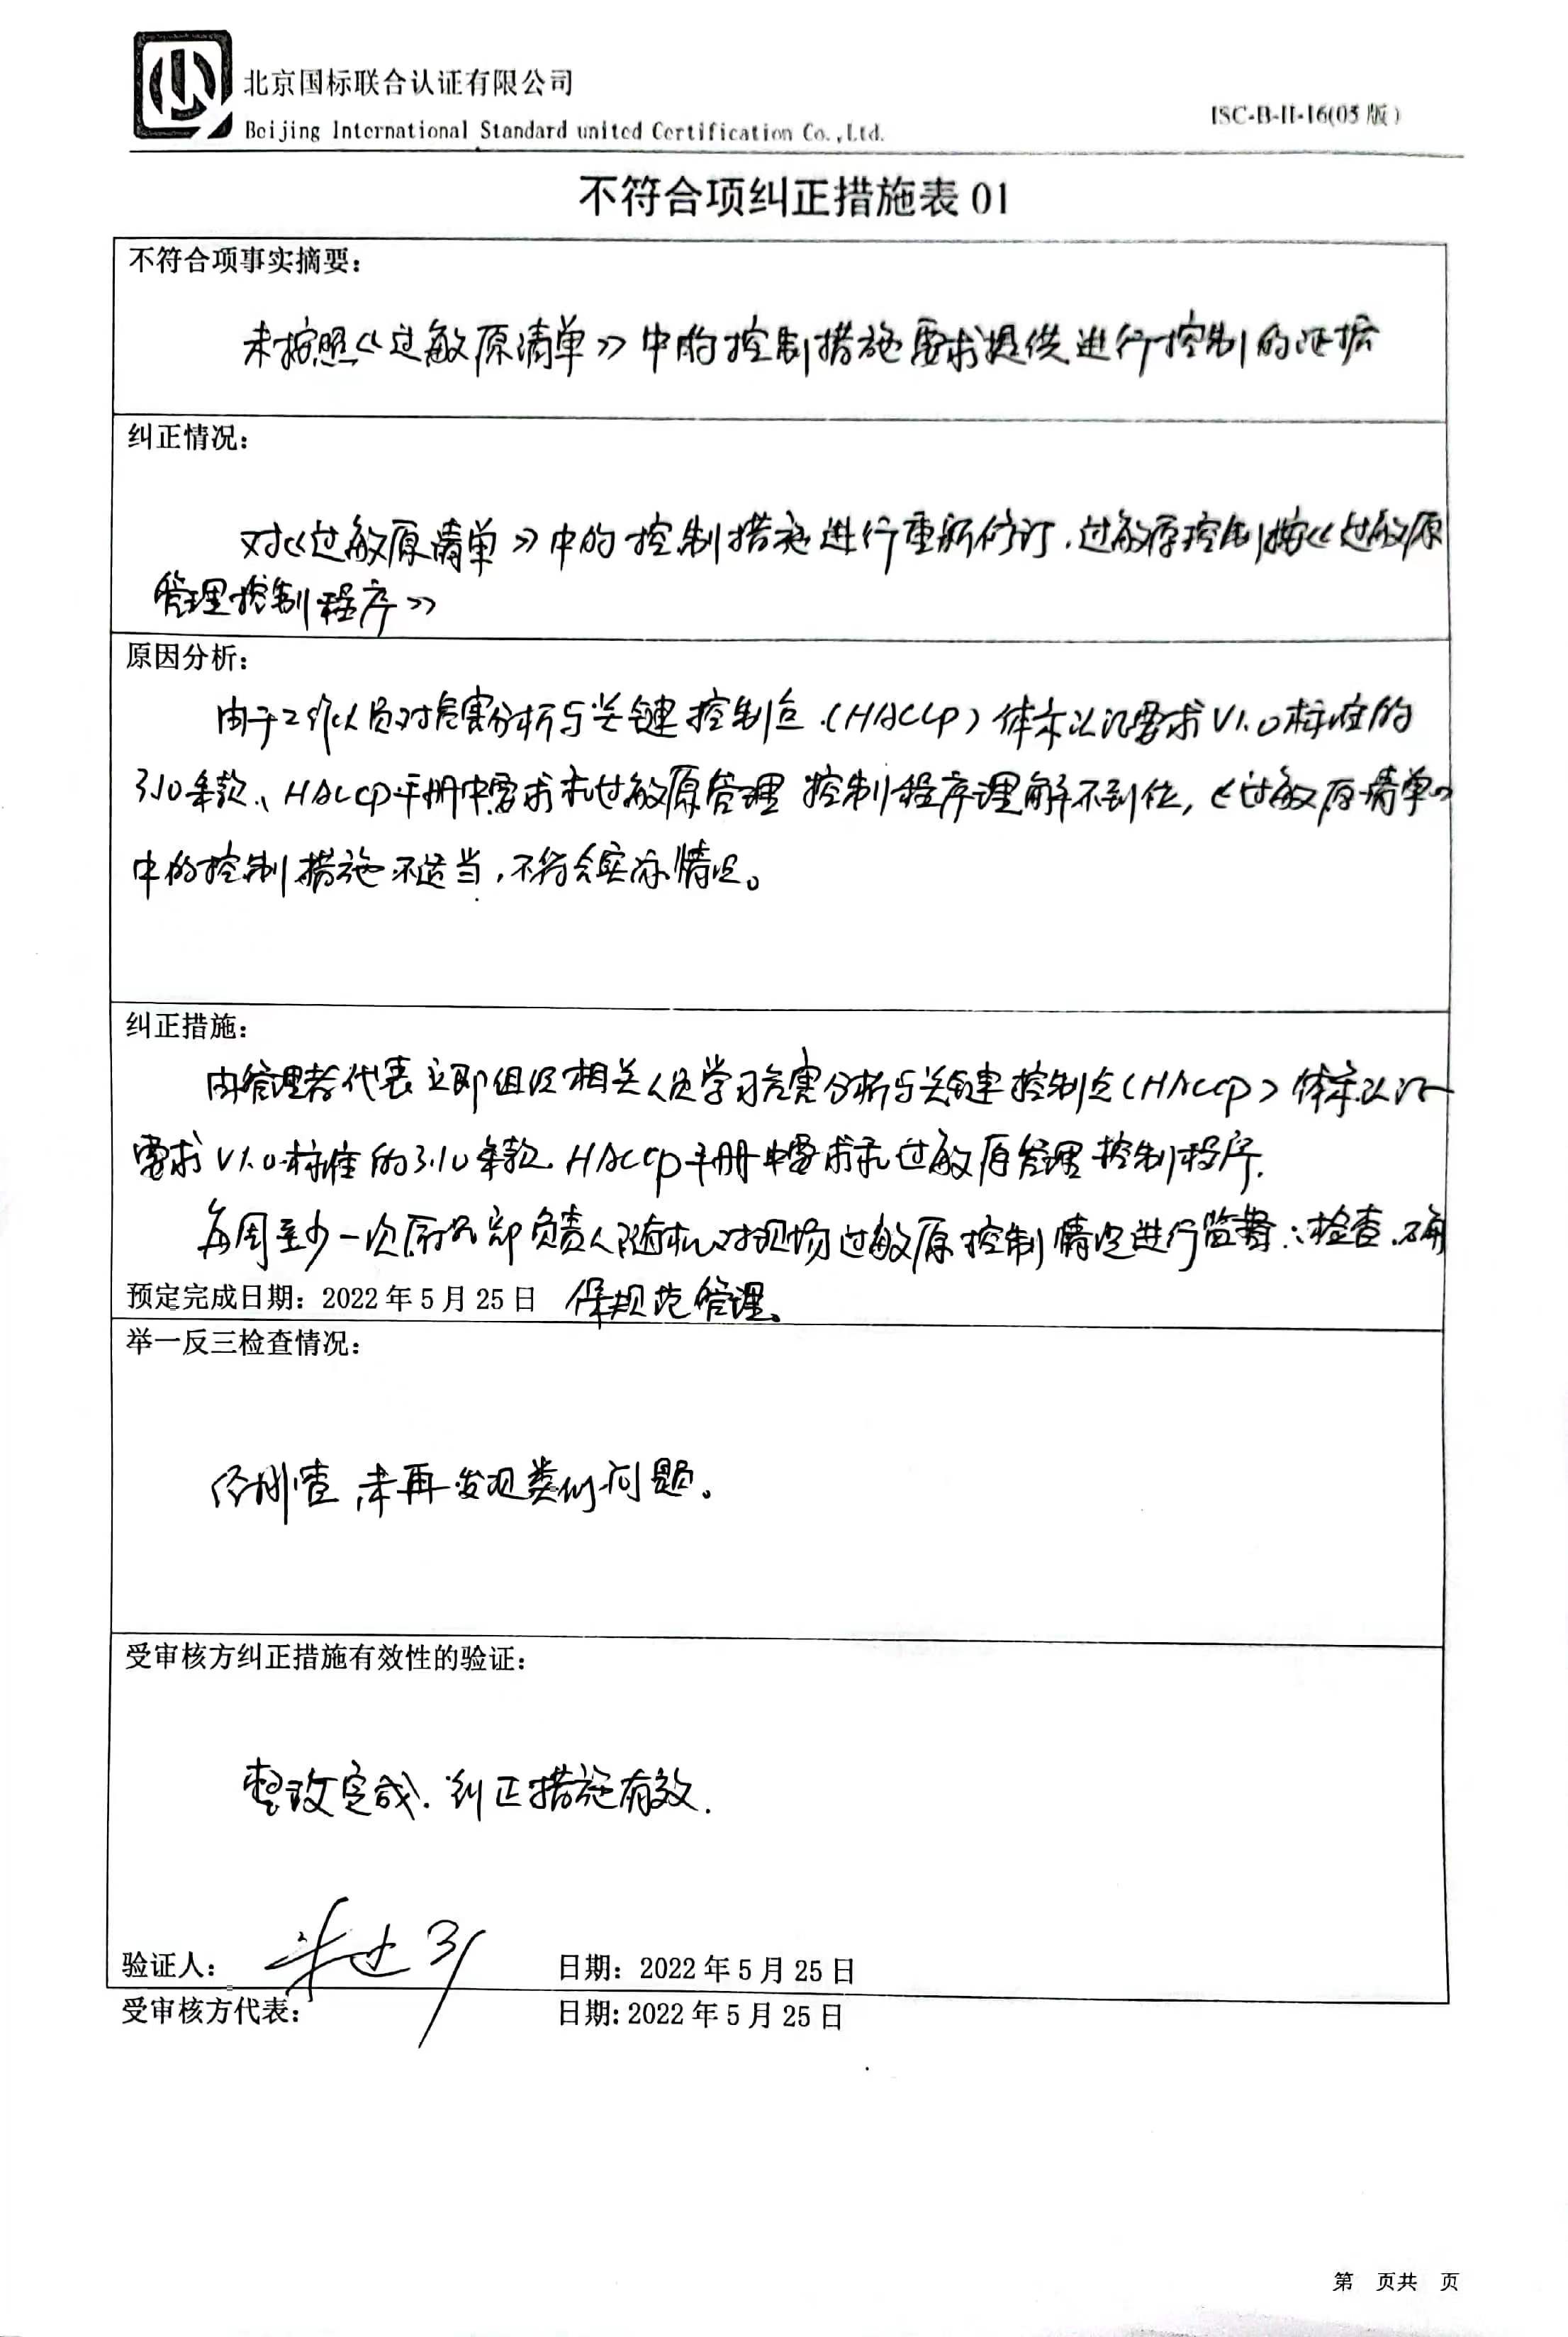 北京国标联合认证有限公司
Beijing International Standard united Certification Co.,Ltd.
ISC-B-II-16(03版)
不符合项纠正措施表 01
不符合项事实摘要:
未按照《过敏原清单》中的控制措施要求提供进行控制的证据
纠正情况:
对《过敏原清单》中的控制措施进行重新修订,过敏原控制按《过敏原
管理控制程序》
原因分析:
由于工作人员对危害分析与关键控制点(HACCP)体系认证要求V1.0标准的
3.10条款、HACCP手册中要求和过敏原管理控制程序理解不到位,《过敏原清单》
中的控制措施不适当,不符合实际情况。
纠正措施:
由管理者代表立即组织相关人员学习危害分析与关键控制点(HACCP)体系认证
要求V1.0标准的3.10条款、HACCP手册中要求和过敏原管理控制程序.
每周至少一次 部负责人随机对现场过敏原控制情况进行监督、检查,确
预定完成日期:2022年5月25日 保规范管理。
举一反三检查情况:
经检查,未再发现类似问题。
受审核方纠正措施有效性的验证:
整改完成.纠正措施有效.
验证人: 日期:2022年5月25日
受审核方代表: 日期:2022年5月25日
第 页共 页